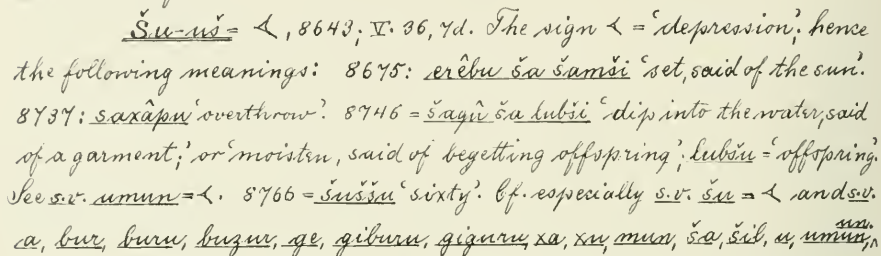 Šu-uš = 𒌋, 8643; V. 36, 7d. The sign 𒌋 = 'depression'; hence
the following meanings: 8675: erêbu ša šamši 'set, said of the sun'.
8737: saxâpu 'overthrow'. 8746 = šaqû ša lubši 'dip into the water, said
of a garment;' or 'moisten, said of begetting offspring'; lubšu = 'offspring'.
See s.v. umun = 𒌋. 8766 = šuššu 'sixty'. Cf. especially s.v. šu = 𒌋 and s.v.
a, bur, buru, buzur, ge, giburu, giguru, xa, xu, mun, ša, šil, u, umun, un.